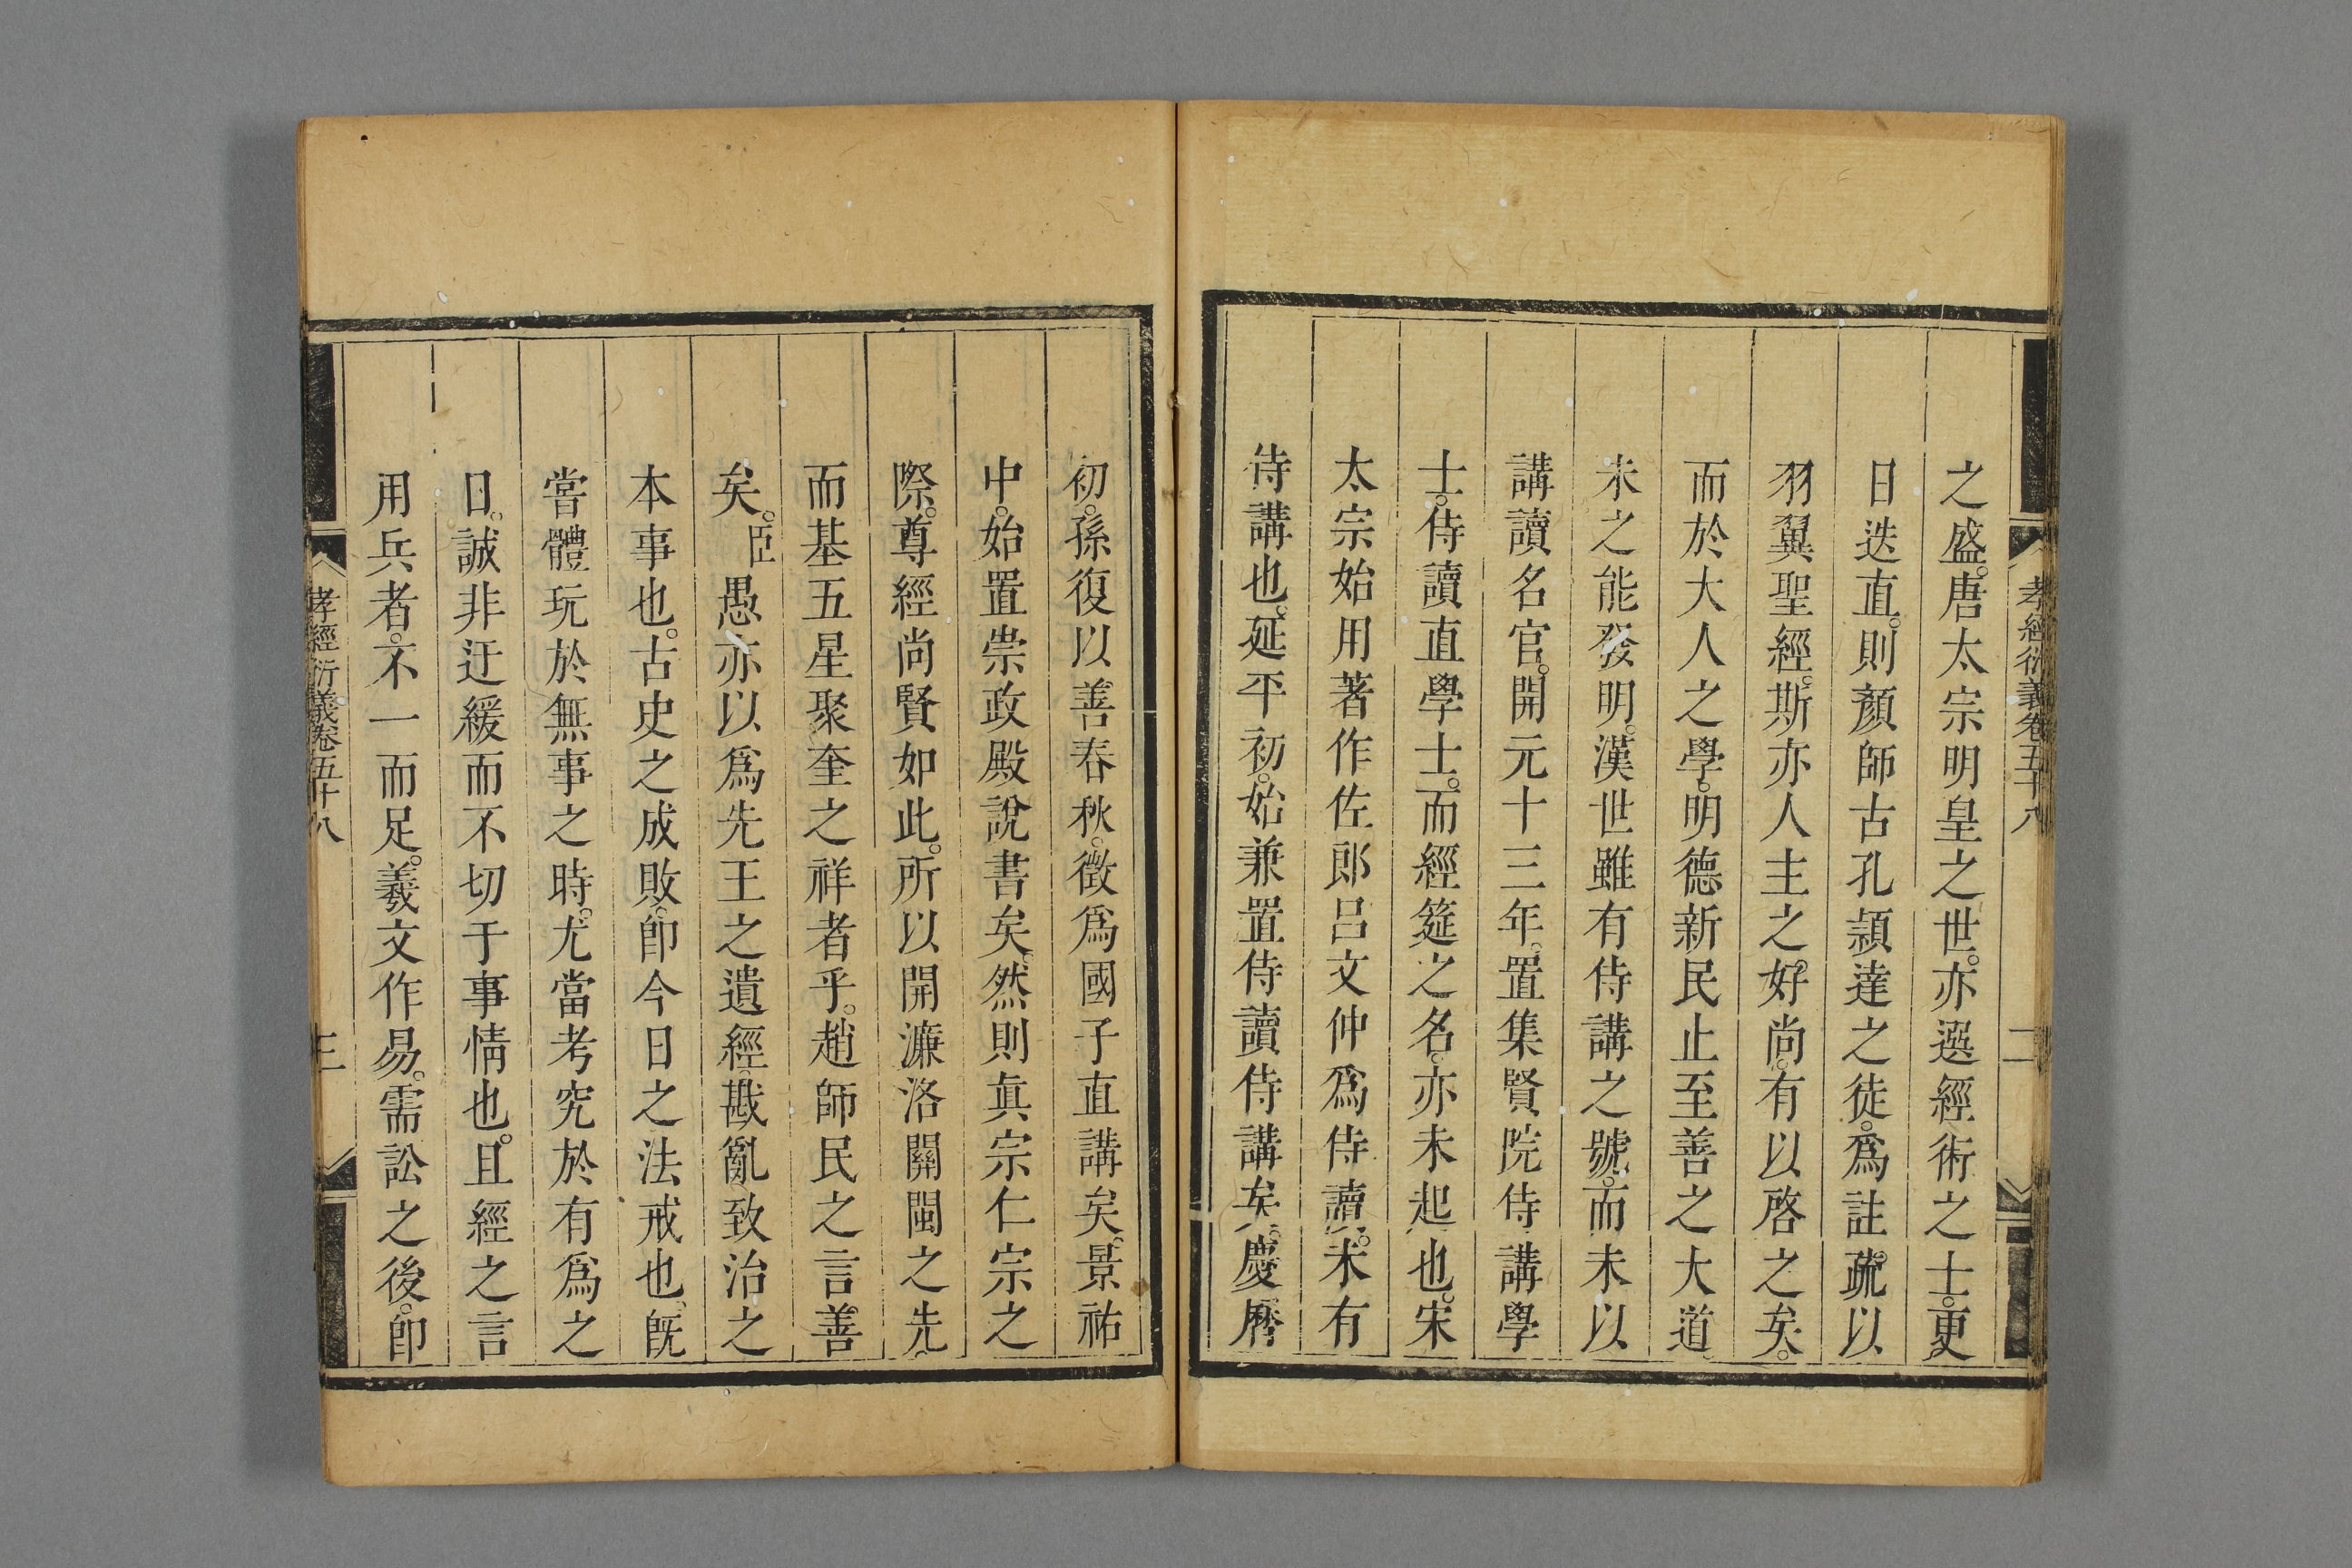 孝經衍義卷五十八 二
之盛。唐太宗明皇之世。亦選經術之士。更
日迭直。則顏師古孔頴達之徒。爲註疏。以
羽翼聖經。斯亦人主之好尚。有以啓之矣。
而於大人之學。明德新民止至善之大道。
未之能發明。漢世雖有侍講之號。而未以
講讀名官。開元十三年。置集賢院侍講學
士。侍讀直學士。而經筵之名。亦未起也。宋
太宗始用著作佐郎呂文仲爲侍讀。未有
侍講也。延平初。始兼置侍讀侍講矣。慶曆
初。孫復以善春秋。徵爲國子直講矣。景祐
中。始置崇政殿說書矣。然則眞宗仁宗之
際。尊經尚賢如此。所以開濂洛關閩之先。
而基五星聚奎之祥者乎。趙師民之言善
矣。臣愚亦以爲先王之遺經。戡亂致治之
本事也。古史之成敗。卽今日之法戒也。旣
嘗體玩於無事之時。尤當考究於有爲之
日。誠非迂緩而不切于事情也。且經之言
用兵者。不一而足。羲文作易。需訟之後。卽
孝經衍義卷五十八 三